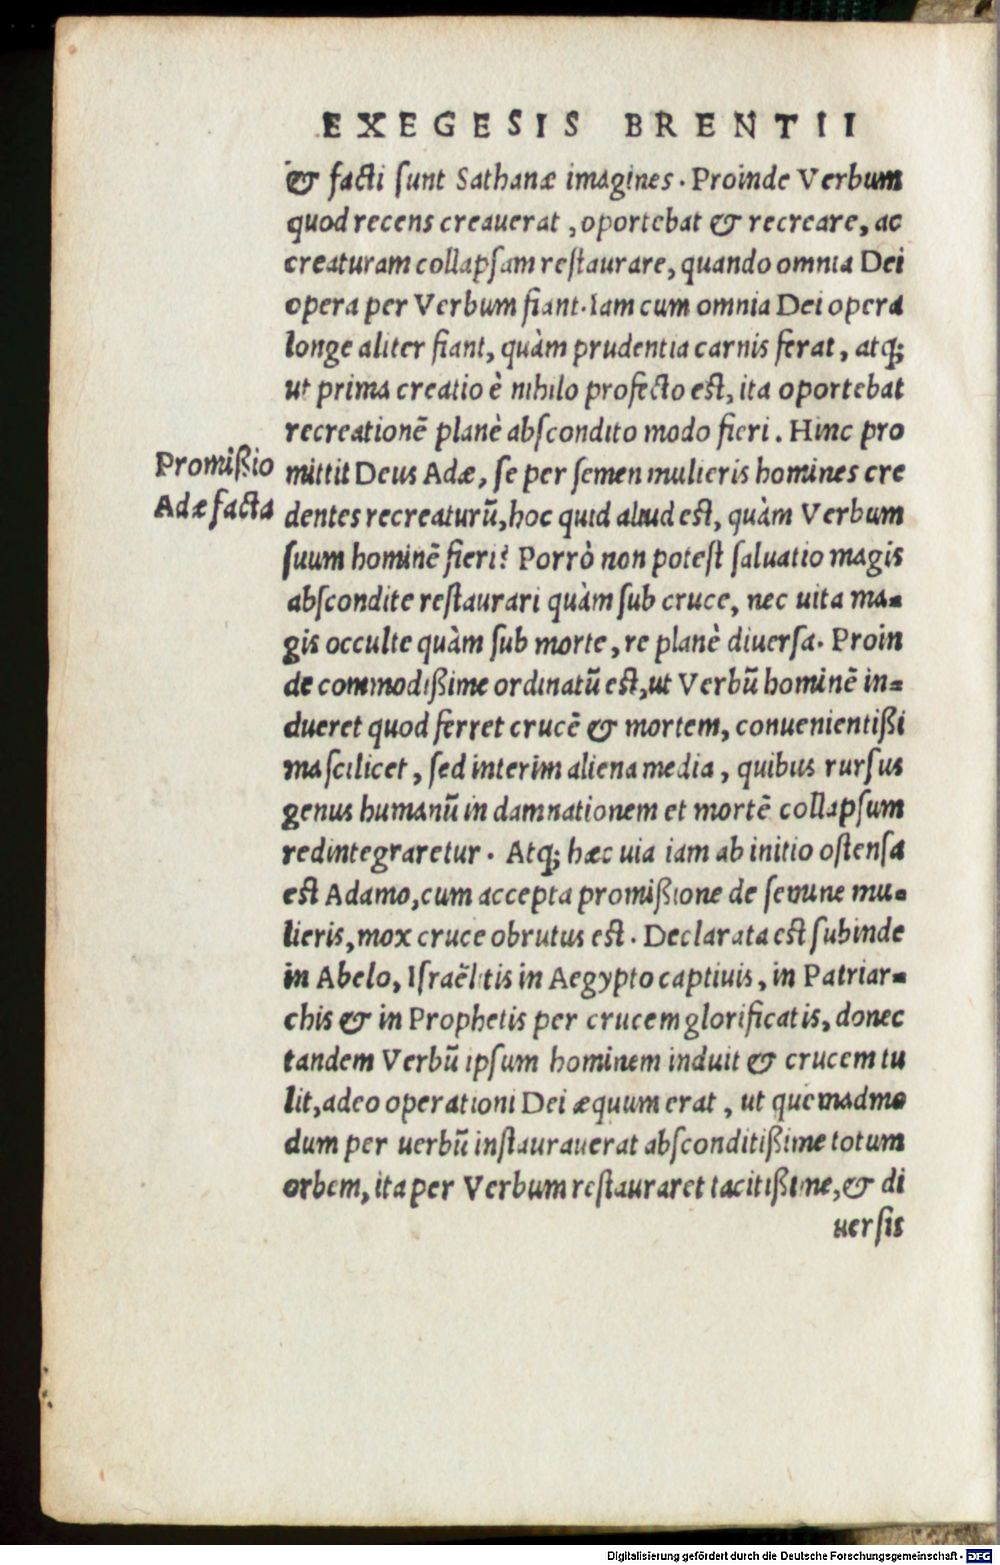 EXEGESIS BRENTII
& facti ſunt Sathanæ imagines. Proinde Verbum
quod recens creauerat, oportebat & recreare, ac
creaturam collapſam reſtaurare, quando omnia Dei
opera per Verbum fiant. Iam cum omnia Dei opera
longe aliter fiant, quàm prudentia carnis ferat, atq;
ut prima creatio è nihilo profecto eſt, ita oportebat
recreationē planè abſcondito modo fieri. Hinc pro
Promißio
Adæ facta
mittit Deus Adæ, ſe per ſemen mulieris homines cre
dentes recreaturū, hoc quid aliud eſt, quàm Verbum
ſuum hominē fieri? Porrò non poteſt ſaluatio magis
abſcondite reſtaurari quàm ſub cruce, nec uita ma-
gis occulte quàm ſub morte, re planè diuerſa. Proin
de commodißime ordinatū eſt, ut Verbū hominē in-
dueret quod ferret crucē & mortem, conuenientißi
ma ſcilicet, ſed interim aliena media, quibus rurſus
genus humanū in damnationem et mortē collapſum
redintegraretur. Atq; hæc uia iam ab initio oſtenſa
eſt Adamo, cum accepta promißione de ſemine mu-
lieris, mox cruce obrutus eſt. Declarata eſt ſubinde
in Abelo, Iſraëlitis in Aegypto captiuis, in Patriar-
chis & in Prophetis per crucem glorificatis, donec
tandem Verbū ipſum hominem induit & crucem tu
lit, adeo operationi Dei æquum erat, ut quemadmo
dum per uerbū inſtaurauerat abſconditißime totum
orbem, ita per Verbum reſtauraret tacitißime, & di
uerſis
Digitalisierung gefördert durch die Deutsche Forschungsgemeinschaft - DFG